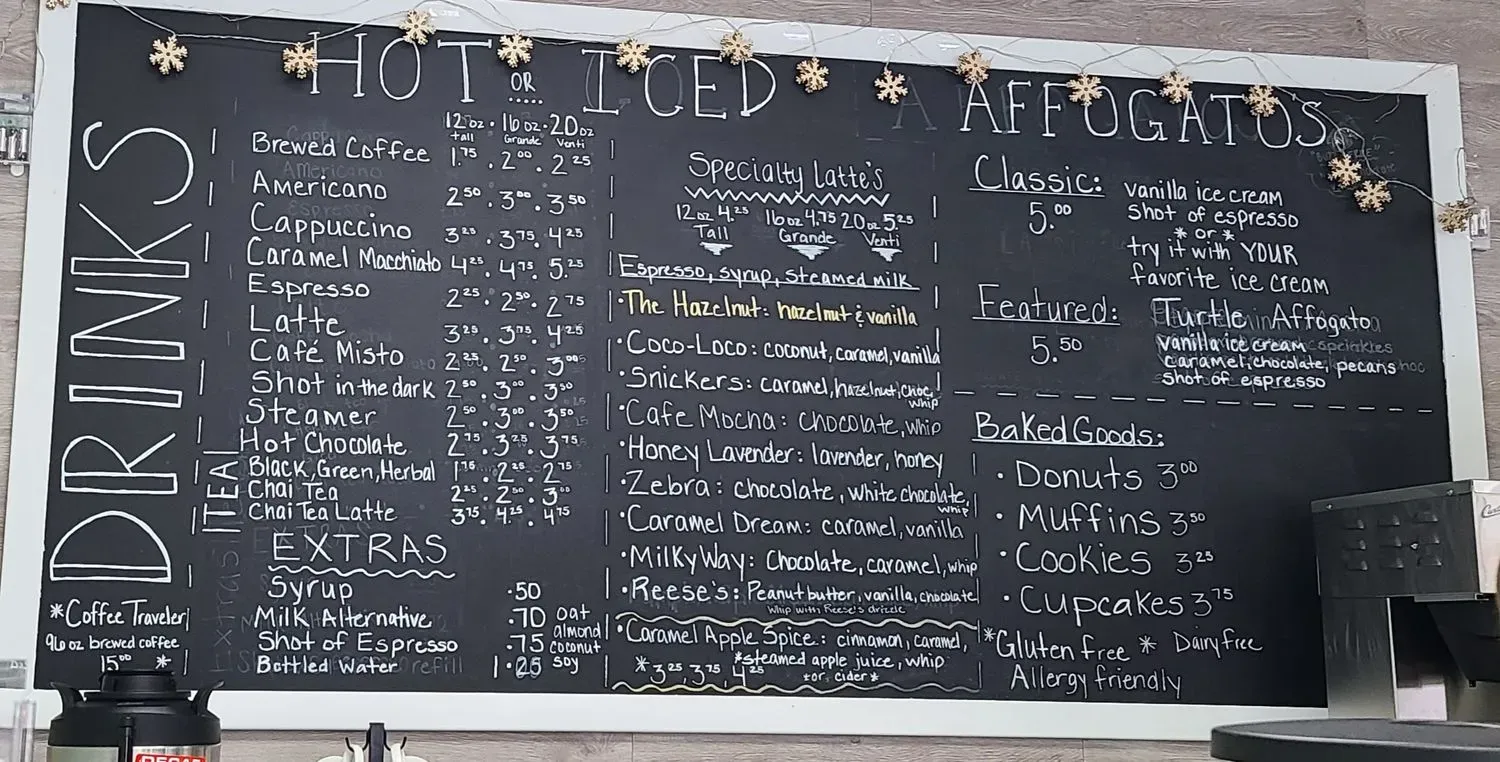 HOT OR ICED
DRINKS
12 oz · 16 oz · 20 oz
Tall Grande Venti
Brewed Coffee 1.75 . 2.00 . 2.25
Americano 2.50 . 3.00 . 3.50
Cappuccino 3.25 . 3.75 . 4.25
Caramel Macchiato 4.25 . 4.75 . 5.25
Espresso 2.25 . 2.50 . 2.75
Latte 3.25 . 3.75 . 4.25
Café Misto 2.25 . 2.50 . 3.00
Shot in the dark 2.50 . 3.00 . 3.50
Steamer 2.50 . 3.00 . 3.50
Hot Chocolate 2.75 . 3.25 . 3.75
TEA
Black, Green, Herbal 1.75 . 2.25 . 2.75
Chai Tea 2.25 . 2.50 . 3.00
Chai Tea Latte 3.75 . 4.25 . 4.75
EXTRAS
Syrup .50
Milk Alternative .70 oat
almond
coconut
soy
Shot of Espresso .75
Bottled Water 1.25
*Coffee Traveler
96 oz brewed coffee
15.00 *
Specialty Latte's
12 oz 4.25 16 oz 4.75 20 oz 5.25
Tall Grande Venti
Espresso, syrup, steamed milk
·The Hazelnut: hazelnut & vanilla
·Coco-Loco: coconut, caramel, vanilla
·Snickers: caramel, hazelnut, choc,
whip
·Cafe Mocha: chocolate, whip
·Honey Lavender: lavender, honey
·Zebra: chocolate, white chocolate,
whip
·Caramel Dream: caramel, vanilla
·Milky Way: Chocolate, caramel, whip
·Reese's: Peanut butter, vanilla, chocolate
whip with Reese's drizzle
·Caramel Apple Spice: cinnamon, caramel,
*steamed apple juice, whip
*3.25, 3.75, 4.25 *or cider*
AFFOGATO'S
Classic: vanilla ice cream
5.00 shot of espresso
*or*
try it with YOUR
favorite ice cream
Featured: Turtle Affogato
5.50 vanilla ice cream
caramel, chocolate, pecans
shot of espresso
Baked Goods:
· Donuts 3.00
· Muffins 3.50
· Cookies 3.25
· Cupcakes 3.75
*Gluten free * Dairy free
Allergy friendly
DECAF